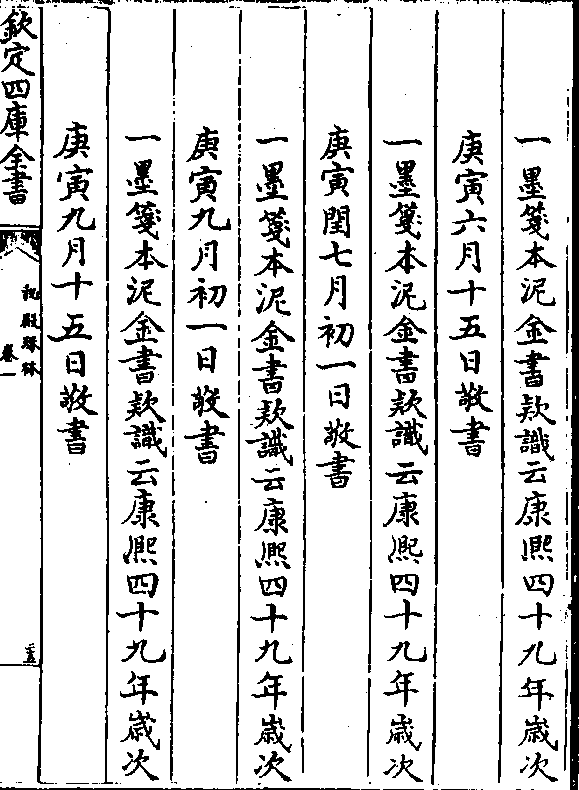 一墨箋本泥金書款識云康熙四十九年歲次
庚寅六月十五日敬書
一墨箋本泥金書款識云康熙四十九年歲次
庚寅閏七月初一日敬書
一墨箋本泥金書款識云康熙四十九年歲次
庚寅九月初一日敬書
一墨箋本泥金書款識云康熙四十九年歲次
庚寅九月十五日敬書
欽定四庫全書
秘殿珠林
卷一
三五